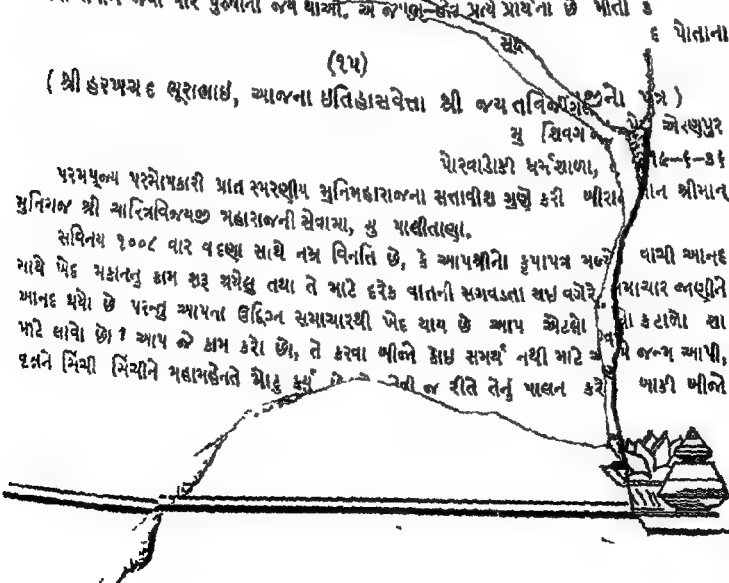 જય થાઓ. એ
પોતાના
(૧૫)
( શ્રી હરખચદ ભૂરાભાઇ, આજના ઇતિહાસવેત્તા શ્રી જયતવિજયજીનો પત્ર )
મુ શિવગ એરણપુર
પોરવાડોકી ધર્મશાળા, ૧૯-૬-૩૬
પરમપૂજ્ય પરમોપકારી પ્રાત સ્મરણીય મુનિમહારાજના સત્તાવીશ ગુણે કરી બીરાજમાન શ્રીમાન્
મુનિરાજ શ્રી ચારિત્રવિજયજી મહારાજની સેવામા, મુ પાલીતાણા.
સવિનય ૧૦૦૮ વાર વદણા સાથે નમ્ર વિનતિ છે, કે આપશ્રીનો કૃપાપત્ર મળ્યો વાચી આનદ
સાથે ખેદ મકાનનુ કામ શરૂ થયેલુ તથા તે માટે દરેક વાતની સગવડતા થઇ વગેરે સમાચાર જાણીને
આનદ થયો છે પરન્તુ આપના ઉદ્વિગ્ન સમાચારથી ખેદ થાય છે આપ એટલો કટાળો શા
માટે લાવો છો ? આપ જે કામ કરો છો, તે કરવા બીજો કોઇ સમર્થ નથી માટે જન્મ આપી,
વૃક્ષને સિંચી સિંચીને મહામહેનતે મોટુ કર્યું જ રીતે તેનું પાલન કરો બાકી બીજો